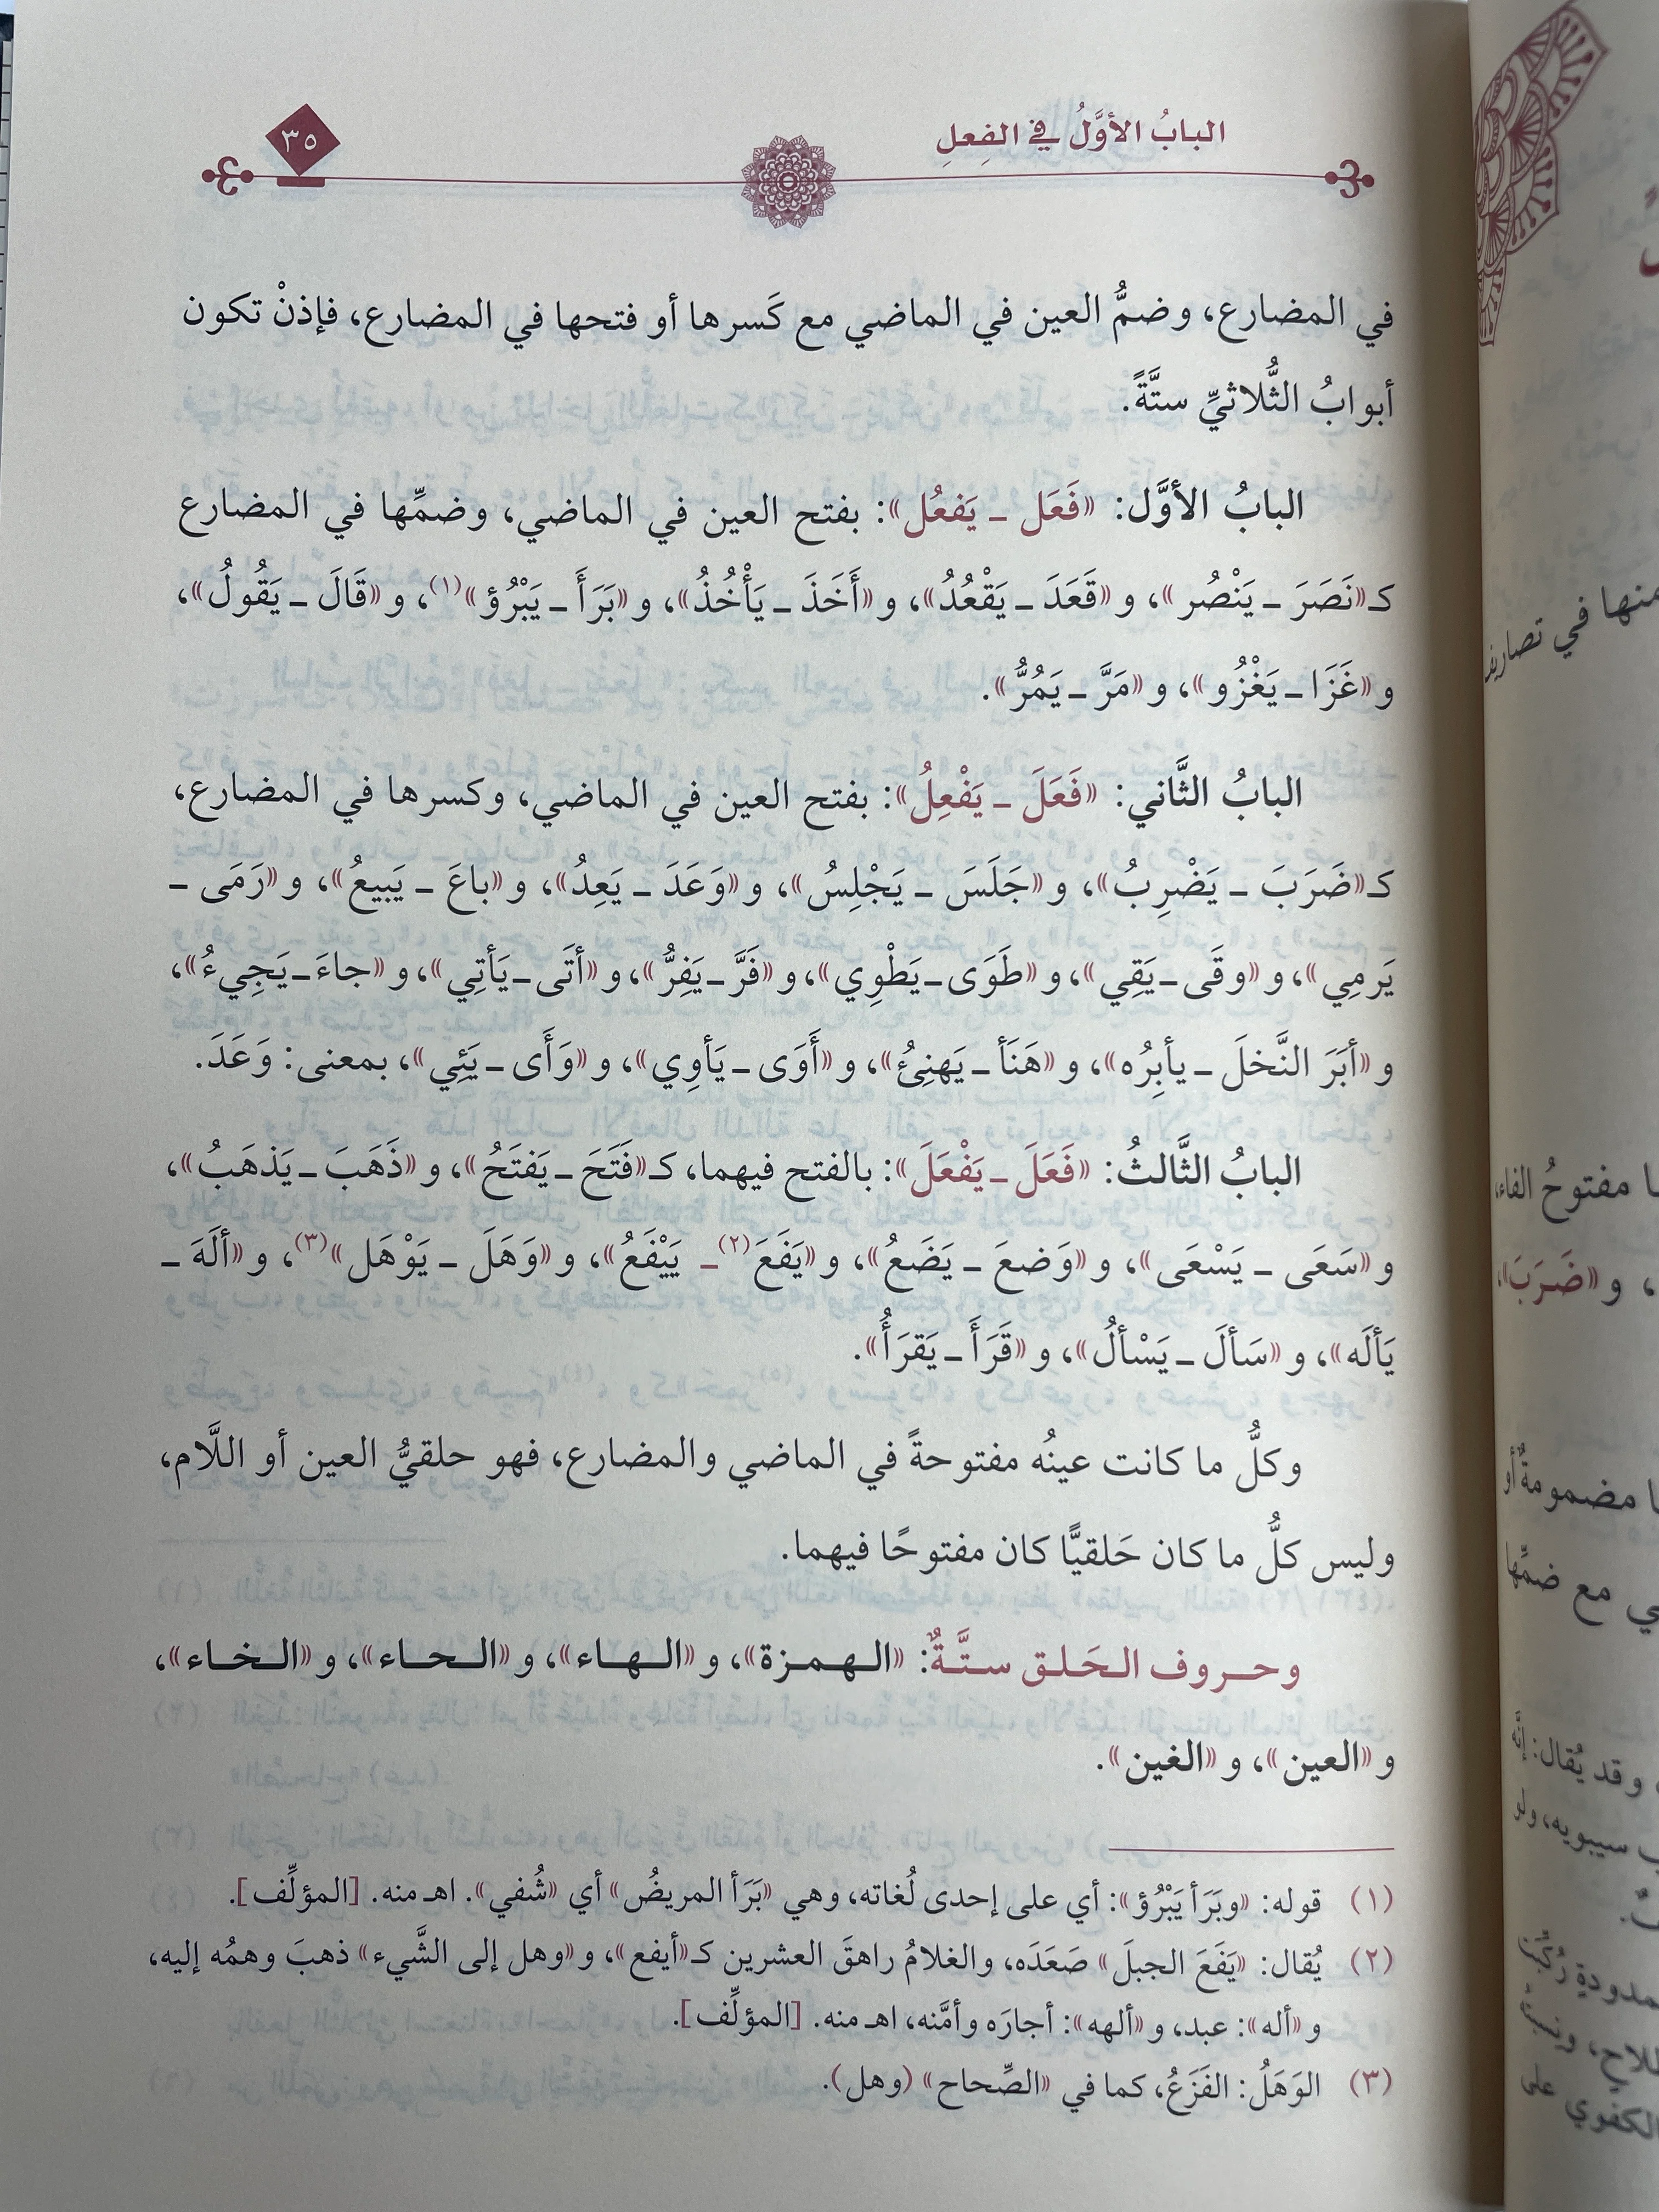 البابُ الأوَّلُ في الفِعلِ
٣٥
في المضارع، وضمُّ العين في الماضي مع كَسرها أو فتحها في المضارع، فإذنْ تكون
أبوابُ الثُّلاثيِّ ستَّةً.
البابُ الأوَّل: «فَعَل ـ يَفعُل»: بفتح العين في الماضي، وضمِّها في المضارع
كـ«نَصَرَ ـ يَنْصُر»، و«قَعَدَ ـ يَقْعُدُ»، و«أَخَذَ ـ يَأْخُذُ»، و«بَرَأَ ـ يَبْرُؤ»(١)، و«قَالَ ـ يَقُولُ»،
و«غَزَا ـ يَغْزُو»، و«مَرَّ ـ يَمُرُّ».
البابُ الثَّاني: «فَعَلَ ـ يَفْعِلُ»: بفتح العين في الماضي، وكسرها في المضارع،
كـ«ضَرَبَ ـ يَضْرِبُ»، و«جَلَسَ ـ يَجْلِسُ»، و«وَعَدَ ـ يَعِدُ»، و«باعَ ـ يَبيعُ»، و«رَمَى ـ
يَرمِي»، و«وقَى ـ يَقِي»، و«طَوَى ـ يَطْوِي»، و«فَرَّ ـ يَفِرُّ»، و«أتَى ـ يَأتِي»، و«جاءَ ـ يَجِيءُ»،
و«أبَرَ النَّخلَ ـ يأبِرُه»، و«هَنَأ ـ يَهنِئُ»، و«أَوَى ـ يَأوِي»، و«وَأَى ـ يَئِي»، بمعنى: وَعَدَ.
البابُ الثَّالثُ: «فَعَلَ ـ يَفْعَلَ»: بالفتح فيهما، كـ«فَتَحَ ـ يَفتَحُ»، و«ذَهَبَ ـ يَذهَبُ»،
و«سَعَى ـ يَسْعَى»، و«وَضعَ ـ يَضَعُ»، و«يَفَعَ(٢) ـ يَيْفَعُ»، و«وَهَلَ ـ يَوْهَل»(٣)، و«ألَهَ ـ
يَألَه»، و«سَألَ ـ يَسْألُ»، و«قَرَأَ ـ يَقرَأُ».
وكلُّ ما كانت عينُه مفتوحةً في الماضي والمضارع، فهو حلقيُّ العين أو اللَّام،
وليس كلُّ ما كان حَلقيًّا كان مفتوحًا فيهما.
وحروف الحَلق ستَّةٌ: «الهمزة»، و«الهاء»، و«الحاء»، و«الخاء»،
و«العين»، و«الغين».
(١) قوله: «وبَرَأ يَبْرُؤ»: أي على إحدى لُغاته، وهي «بَرَأ المريضُ» أي «شُفي». اهـ منه. [المؤلِّف].
(٢) يُقال: «يَفَعَ الجبلَ» صَعَدَه، والغلامُ راهقَ العشرين كـ«أيفع»، و«وهل إلى الشَّيء» ذهبَ وهمُه إليه،
و«أله»: عبد، و«ألهه»: أجارَه وأمَّنه، اهـ منه. [المؤلِّف].
(٣) الوَهَلُ: الفَزَعُ، كما في «الصِّحاح» (وهل).
منها في تصاريف
مفتوحُ الفاء،
، و«ضَرَبَ»،
مضمومةٌ أو
مع ضمِّها
وقد يُقال: إنَّه
سيبويه، ولو
الكفوي على